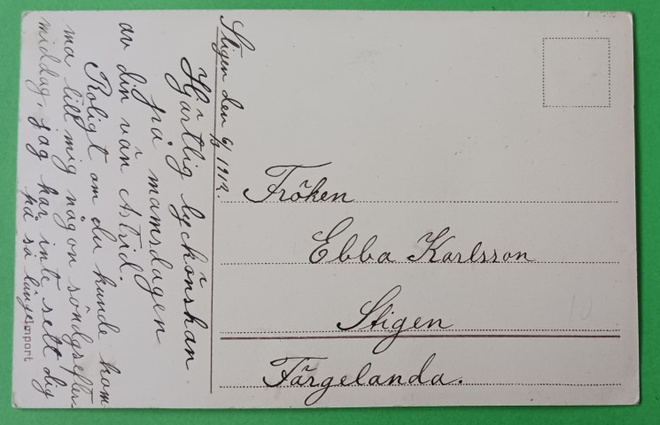 Stigen den 6/3 1912.
Hjärtlig lyckönskan
på namsdagen
av din vän Astrid.
Roligt om du kunde kom
ma till mig någon söndgsefter
middag, jag har inte sett dig
på så länge
Import
Fröken
Ebba Karlsson
Stigen
Färgelanda.